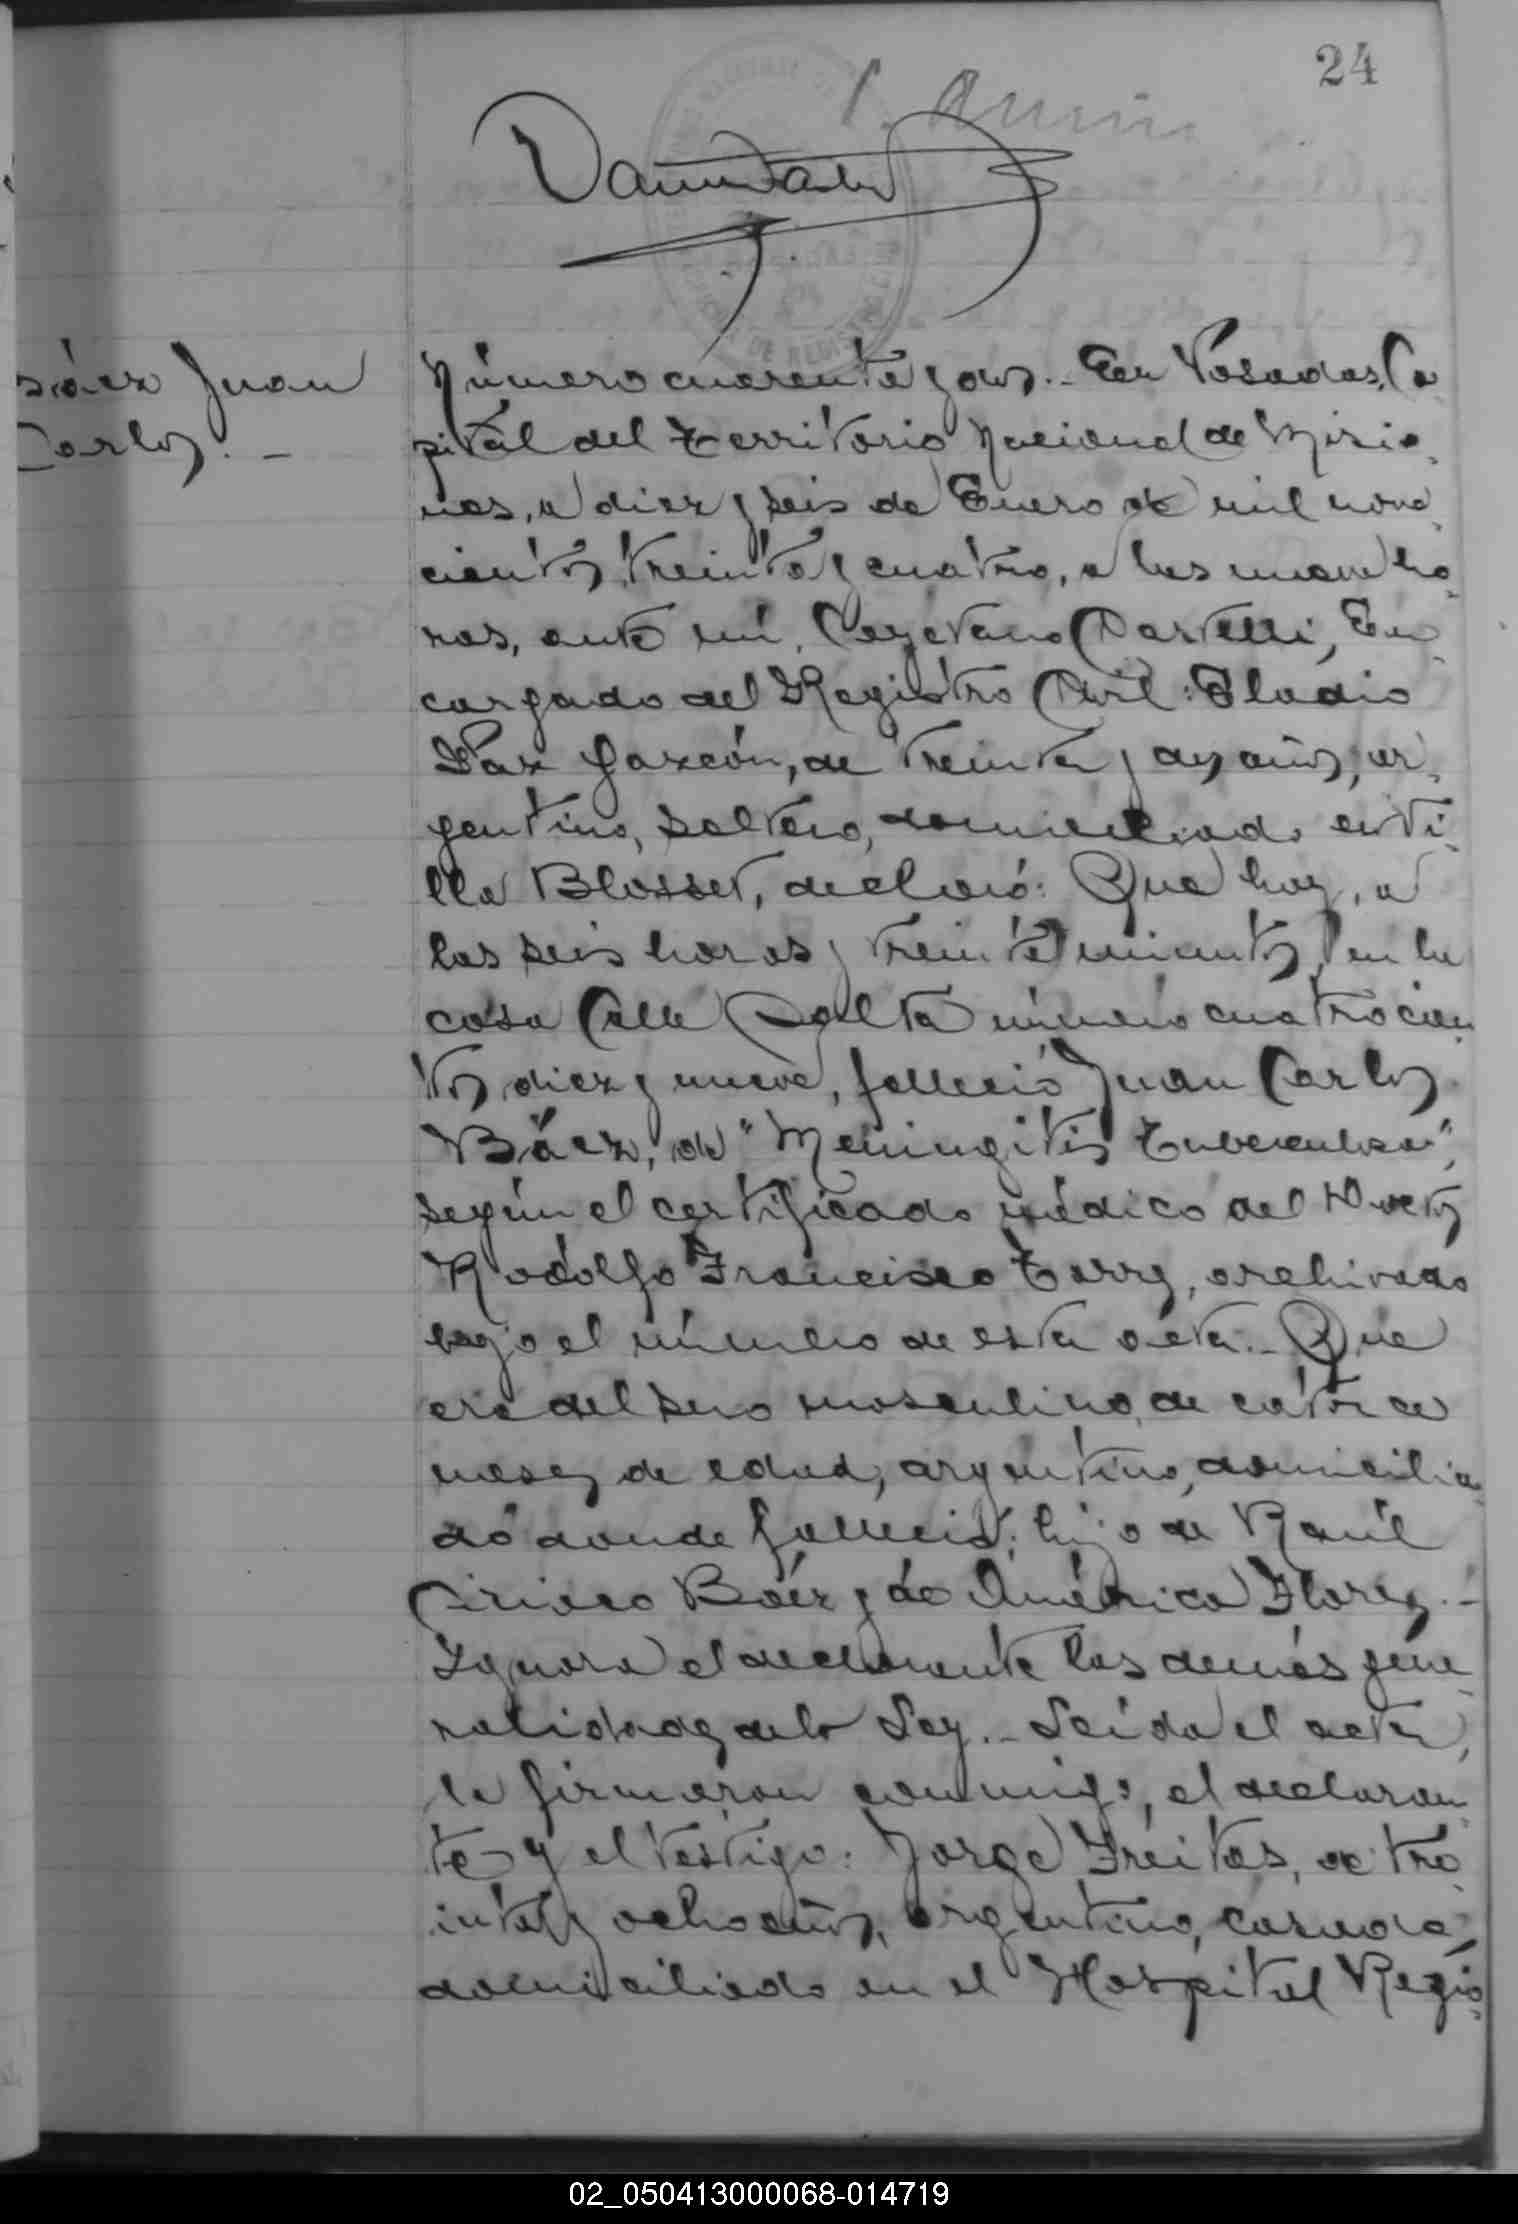 24
Báez Juan
Carlos. –
Número cuarenta y dos.- En Posadas, Ca-
pital del Territorio Nacional de Misio-
nes, a diez y seis de Enero de mil nove-
cientos treinta y cuatro, a las nueve ho-
ras, ante mí, Cayetano Castelli, En-
cargado del Registro Civil: Eladio
Paz Garzón, de treinta y dos años, ar-
gentino, soltero, domiciliado en Vi-
lla Blosset, declaró: Que hoy, a
las seis horas y treinta minutos, en la
casa Calle Salta número cuatrocien-
tos diez y nueve, falleció Juan Carlos
Báez, de "Meningitis Tuberculosa",
según el certificado médico del Doctor
Rodolfo Francisco Torry, archivado
bajo el número de esta acta.- Que
era del sexo masculino, de catorce
meses de edad, argentino, domicilia-
do donde falleció; hijo de Raúl
Ciriaco Báez y de América Flores.-
Ignora el declarante las demás gene-
ralidades de la Ley.- Leída el acta,
la firmaron conmigo, el declaran-
te y el testigo: Jorge Freitas, de tre-
inta y ocho años, argentino, casado,
domiciliado en el Hospital Regio-
02_050413000068-014719